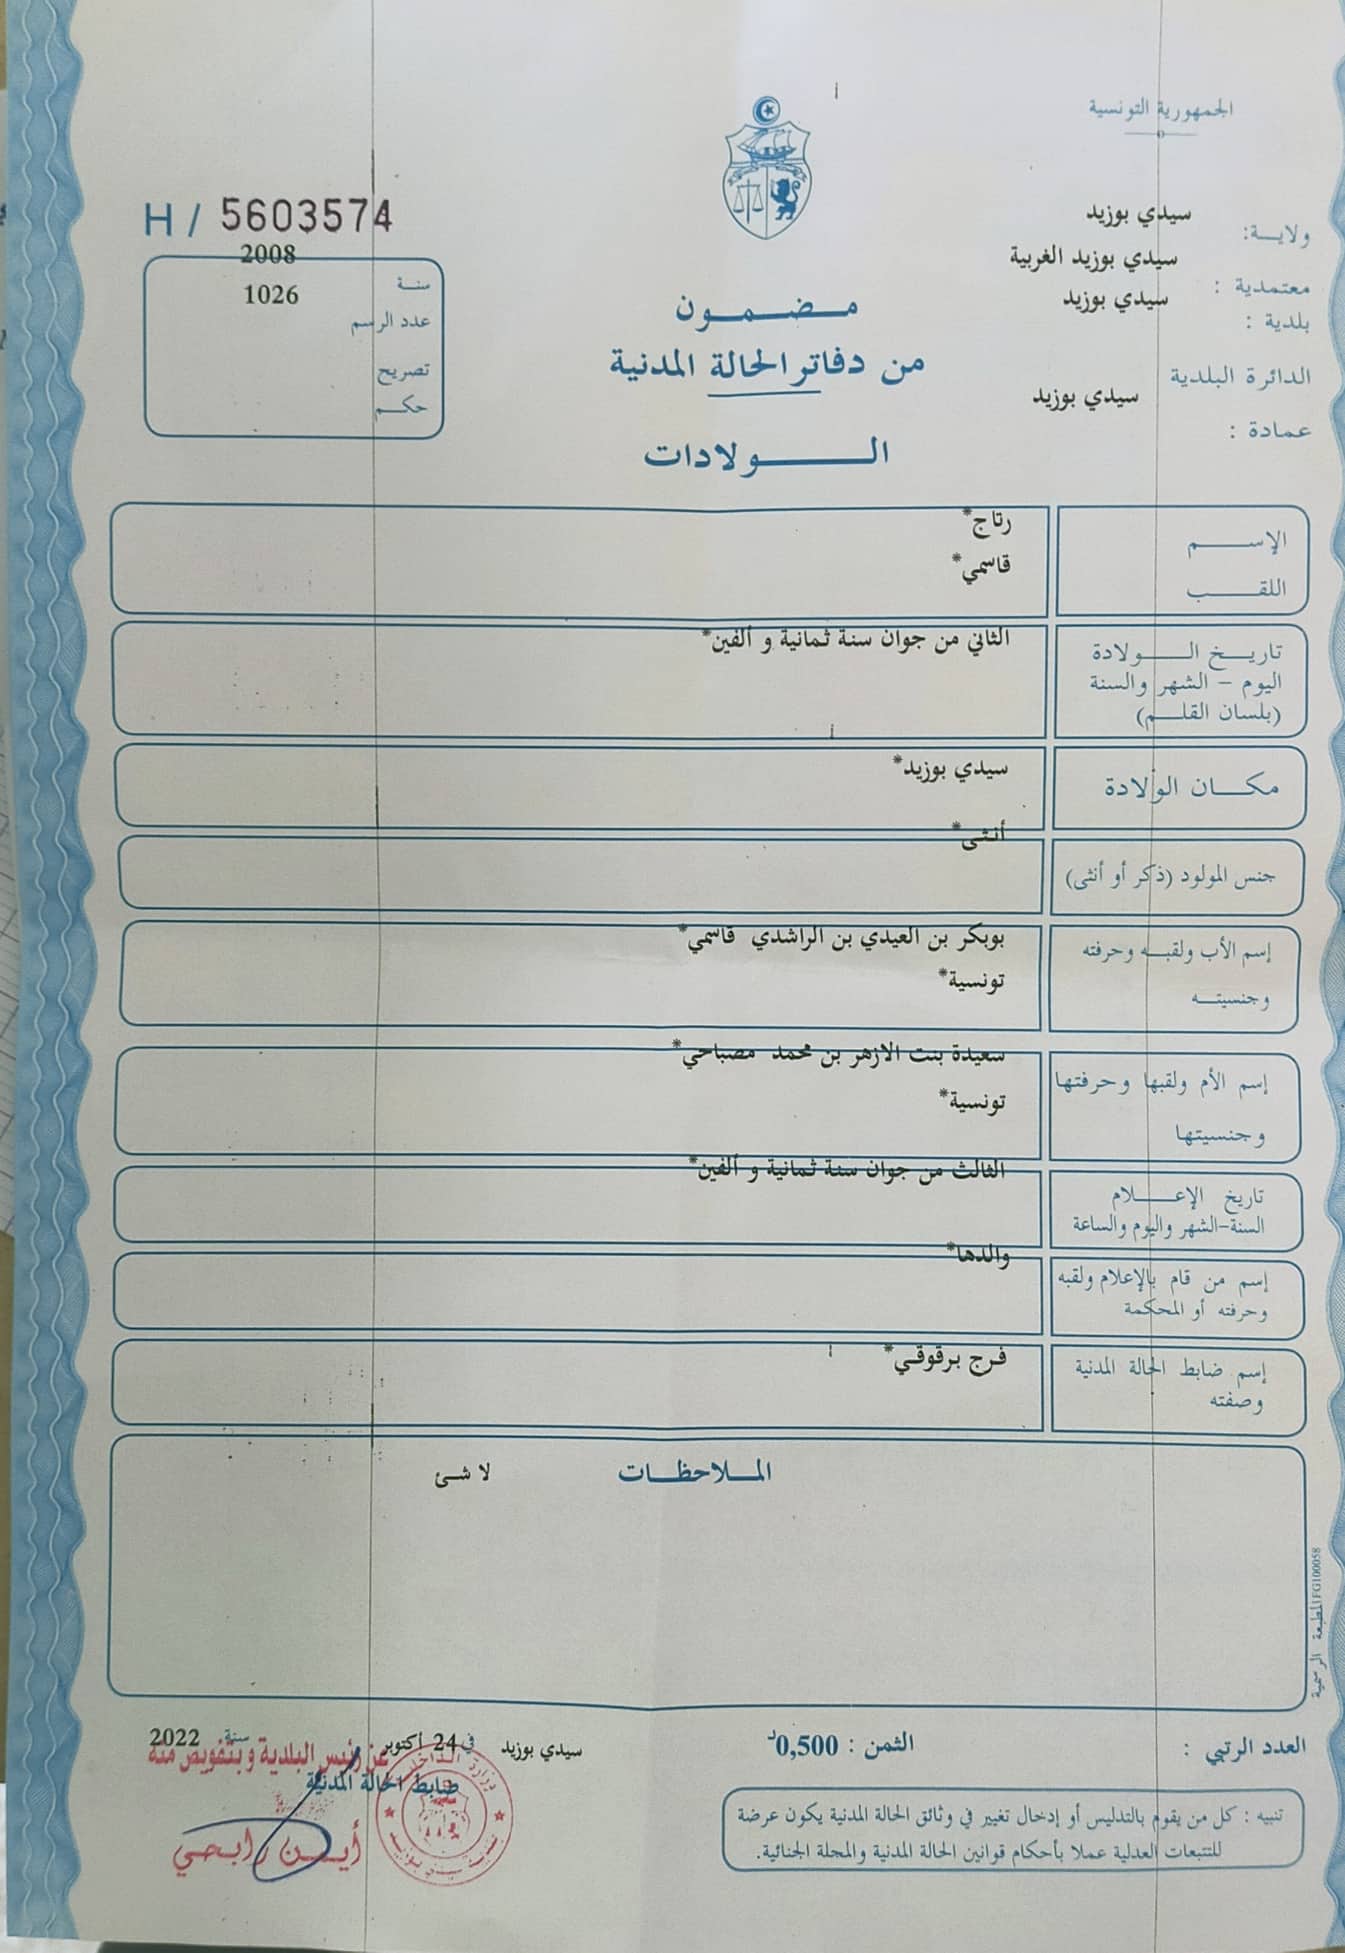 الجمهورية التونسية
ولايـــة: سيدي بوزيد
معتمدية : سيدي بوزيد الغربية
بلدية : سيدي بوزيد
الدائرة البلدية
سيدي بوزيد
عمادة :
H / 5603574
سنــة 2008
عدد الرسم 1026
تصريح
حكــم
مـــضـــمـــون
من دفاتر الحالة المدنية
الـــــولادات
الإســـــم رتاج*
اللقــــب قاسمي*
تاريـــخ الـــــولادة
اليوم – الشهر والسنة
(بلسان القلـــم)
الثاني من جوان سنة ثمانية و ألفين*
مكـــان الولادة سيدي بوزيد*
جنس المولود (ذكر أو أنثى) أنثى*
إسم الأب ولقبــه وحرفته
وجنسيتــه
بوبكر بن العيدي بن الراشدي قاسمي*
تونسية*
إسم الأم ولقبها وحرفتها
وجنسيتها
سعيدة بنت الازهر بن محمد مصباحي*
تونسية*
تاريخ الإعــــلام
السنة-الشهر واليوم والساعة
الثالث من جوان سنة ثمانية و ألفين*
إسم من قام بالإعلام ولقبه
وحرفته أو المحكمة
والدها*
إسم ضابط الحالة المدنية
وصفته
فرج برقوقي*
المـــلاحظـــات لا شئ
المطبعة الرسمية FG100058
العدد الرتبي :
الثمن : 0,500د
سيدي بوزيد في 24 أكتوبر سنة 2022
عن رئيس البلدية وبتفويض منه
ضابط الحالة المدنية
وزارة الداخلية
بلدية سيدي بوزيد
تنبيه : كل من يقوم بالتدليس أو إدخال تغيير في وثائق الحالة المدنية يكون عرضة
للتتبعات العدلية عملا بأحكام قوانين الحالة المدنية والمجلة الجنائية.